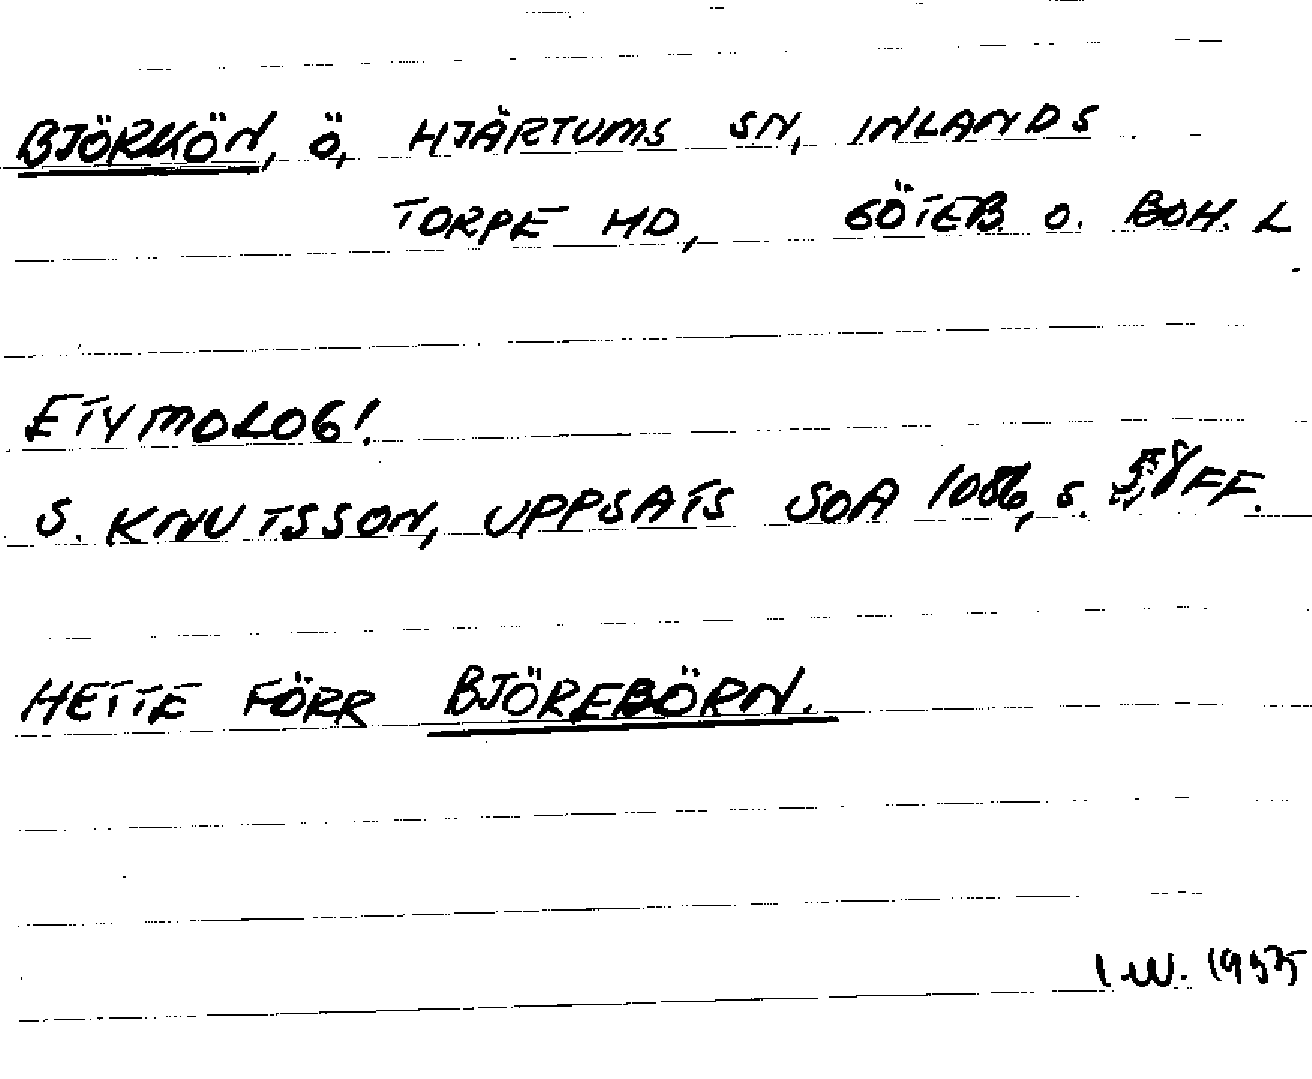 BJÖRKÖN, Ö, HJÄRTUMS SN, INLANDS
TORPE HD, GÖTEB. O. BOH. L.
ETYMOLOGI.
S. KNUTSSON, UPPSATS SOA 1086, S. FF.
HETTE FÖRR BJÖREBÖRN.
I.W. 1975